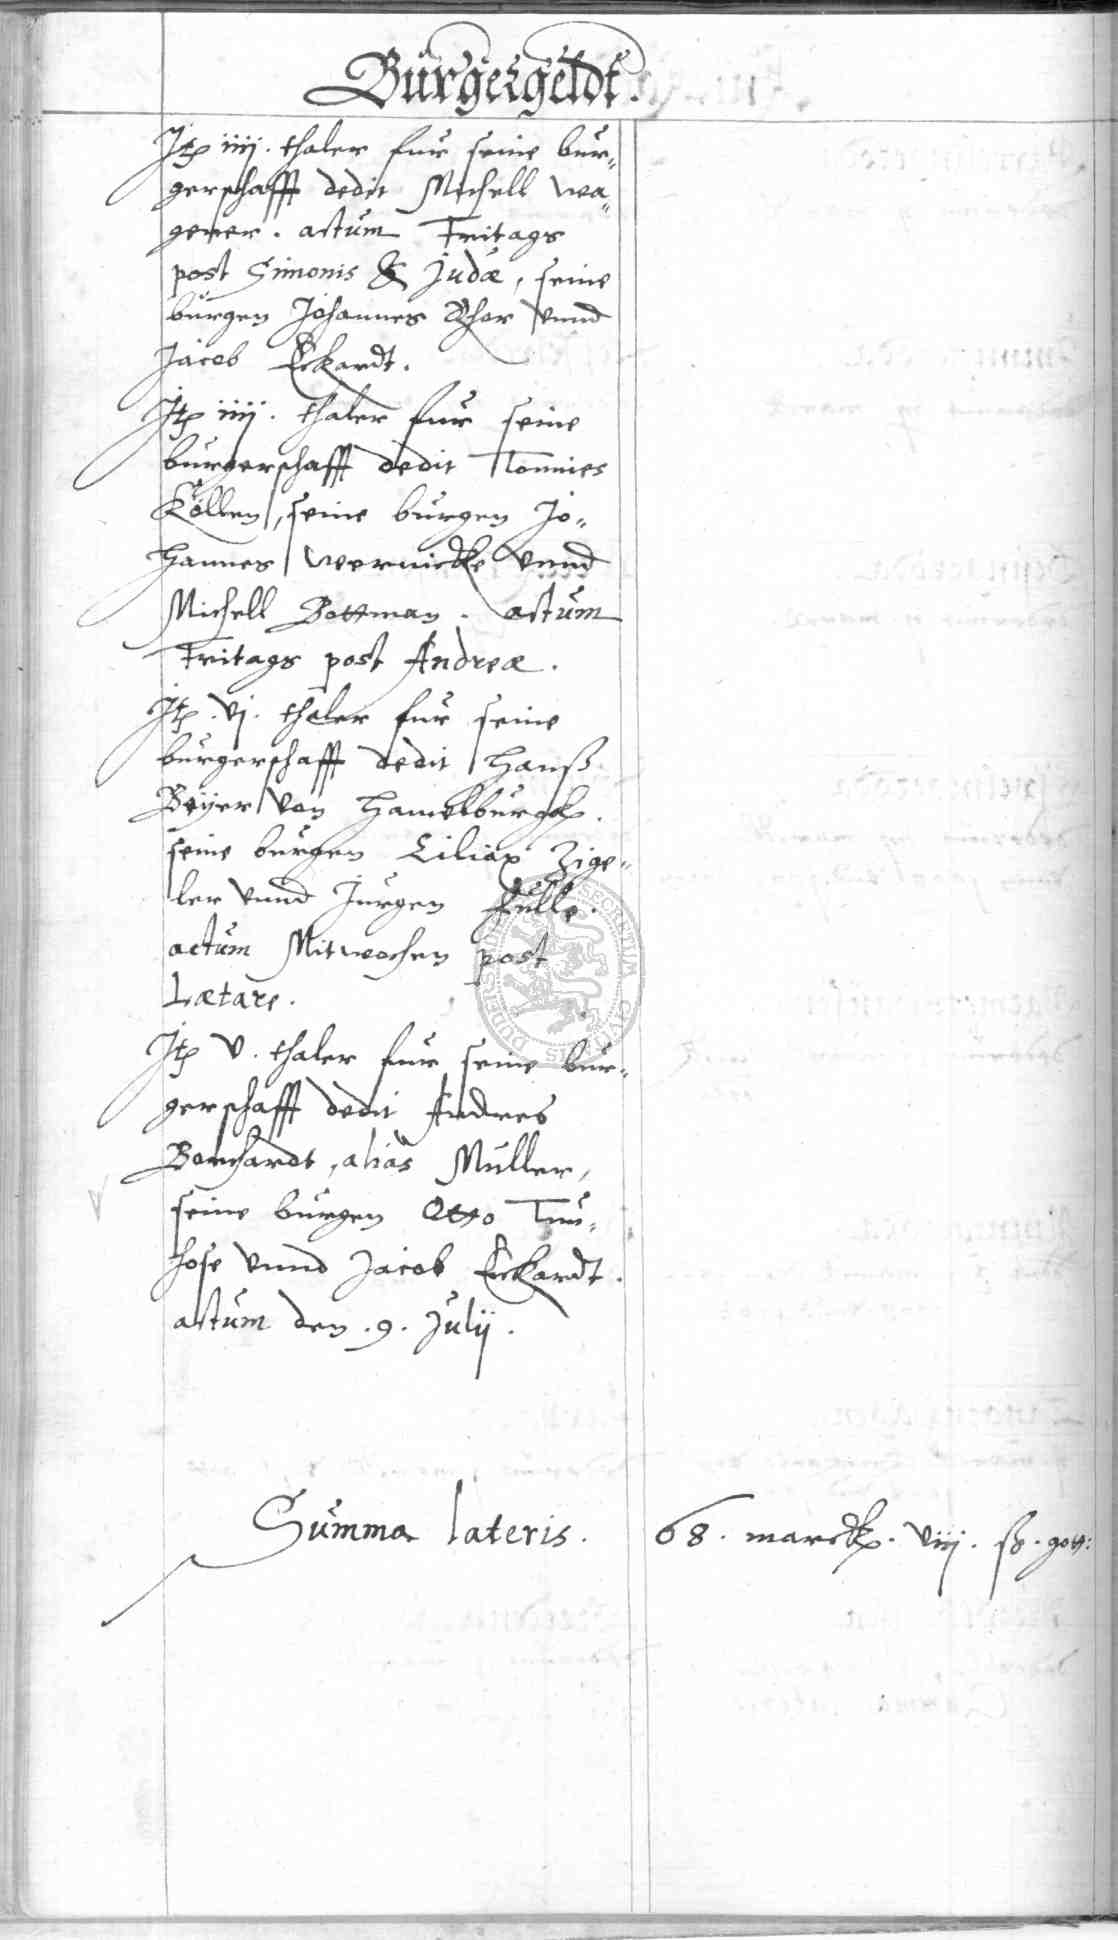 Burgergeldt.
Itp iiij. thaler fur seine bur„
gerschafft dedit Michell wa„
gener. actum Fritags
post Simonis & Judæ, seine
burgen Johannes Rhor vnnd
Jacob Eckardt.
Itp iiij. thaler fur seine
burgerschafft dedit Tonnies
Köllen, seine burgen Jo„
hannes wernicke vnnd
Michell Bottman. actum
Fritags post Andreæ.
Itp. vj. thaler fur seine
burgerschafft dedit Hanß
Beÿer von Hamelburgk.
seine burgen Ciliax Zige„
ler vnnd Jurgen Fulle.
actum Mitwochen post
Lætare.
Itp v. thaler fur seine bur„
gerschafft dedit Andres
Borchardt, alias Muller,
seine burgen Otto
hose vnnd Jacob Eckardt.
actum den .9. Julij.
Summa lateris. 68. marck. viij. ß. gott:
SECRETUM CIVITATIS